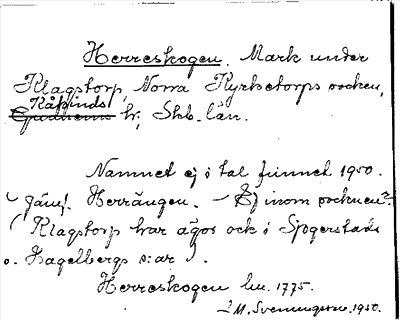 Herreskogen. Mark under
Klagstorp, Norra Kyrketorps socken,
Kåkinds
Gudhems hr, Skb. län.
Namnet ej i tal funnet 1950.
Jämf. Herrängen. – Ej inom socknen?
(Klagstorp har ägor ock i Sjogerstads
o. Hagelbergs s:ar).
Herreskogen hm. 1775.
J M. Svenningsson. 1950.